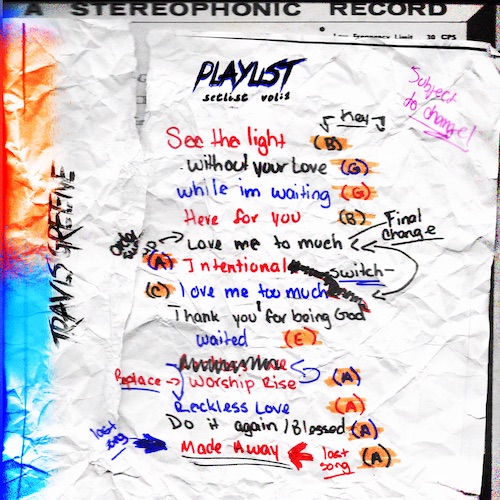 A STEREOPHONIC RECORD
Low Frequency Limit 30 CPS
PLAYLIST
setlist vol:1
Subject to change!
Key
See the light (B)
Without your Love (G)
while im waiting (G)
Here for you (B)
Final change
Love me to much
(A) Intentional
switch
(C) Love me too much
Thank you for being God
waited (E)
Replace → Worship Rise (A)
Reckless Love (A)
Do it again / Blessed (A)
last song
Made A way (A)
last song
TRAVIS GREENE